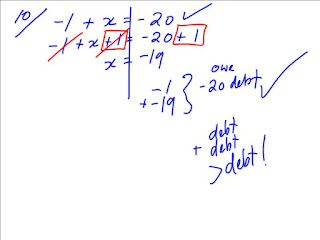 10/ -1 + x = -20 ✓
-1 + x +1 = -20 + 1
x = -19
-1
+ -19
owe
-20 debt ✓
debt
+ debt
> debt!